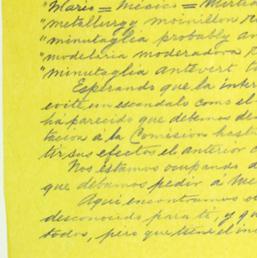 "Maris = Mexico = Mirtla
"metallurgy moinillon r
"minutaglia probably an
"modelaria moderadora r
"minutaglia antevert to
Esperando que la inter
evite un escandalo como el
ha parecido que debemos des
tacion á la Comision hasta
tir sus efectos el anterior c
Nos estamos ocupando d
que debamos pedir á Me
Aqui encontramos o
desconocido para ti, y qu
todos, pero que tiene el in